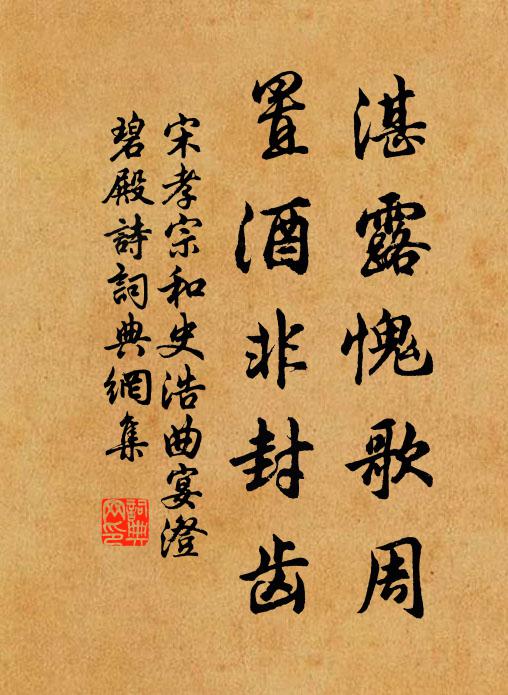 湛露愧歌周
置酒非封齿
宋孝宗和史浩曲宴澄
碧殿詩詞典網集
詞典
网印